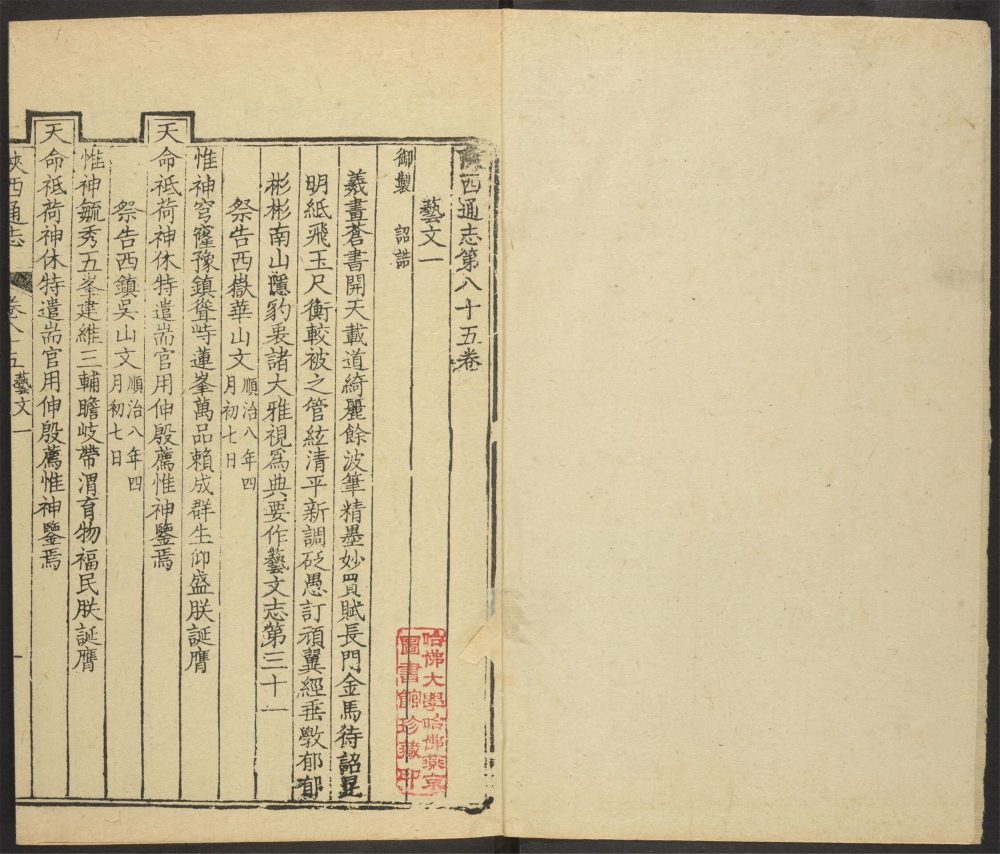 陝西通志第八十五卷
藝文一
御製 詔誥
羲畫蒼書開天載道綺麗餘波筆精墨妙買賦長門金馬待詔昆
明紙飛玉尺衡較被之管絃清平新調砭愚訂頑翼經垂敎郁郁
彬彬南山隱豹裒諸大雅視爲典要作藝文志第三十一
祭告西嶽華山文順治八年四
月初七日
惟神穹窿豫鎮聳峙蓮峯萬品賴成群生仰盛朕誕膺
天命祗荷神休特遣耑官用伸殷薦惟神鑒焉
祭告西鎮吳山文順治八年四
月初七日
惟神毓秀五峯建維三輔瞻岐帶渭育物福民朕誕膺
天命祗荷神休特遣耑官用伸殷薦惟神鑒焉
陝西通志 卷八十五藝文一 一
哈佛大學哈佛燕京
圖書館珍藏印